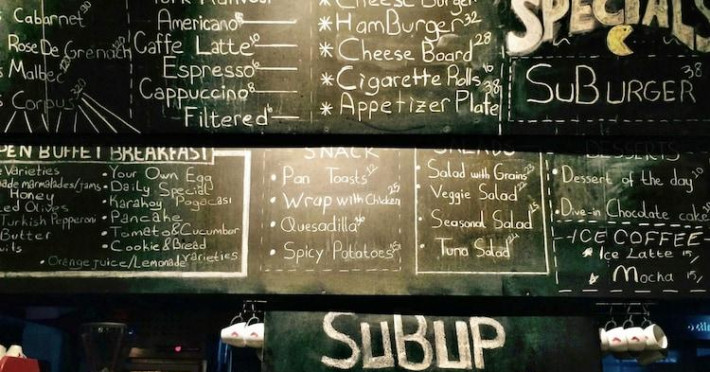 Cabarnet
Rose De Grenach
Malbec
Corpus
Americano
Caffe Latte 10
Espresso 6
Cappuccino 8
Filtered
* Cheese Burger
* HamBurger 32
* Cheese Board 28
* Cigarette Rolls
* Appetizer Plate 38
SPECIALS
SuBURGER 38
PEN BUFFET BREAKFAST
Varieties
ade marmalades/jams
Honey
ed Olives
Turkish Pepperoni
Butter
• Your Own Egg
• Daily Special
• Karakoy Pogacasi
• Pancake
• Tomato & Cucumber
• Cookie & Bread varieties
• Orange juice/Lemonade
SNACK
• Pan Toasts 12
• Wrap with Chicken 25
• Quesadilla
• Spicy Potatoes 15
SALADS
• Salad with Grains
• Veggie Salad
• Seasonal Salad 15
• Tuna Salad 24
DESSERTS
• Dessert of the day 10
• Dive-in Chocolate cake
-ICE COFFEE-
* Ice Latte 15,
* Mocha 15,
SUBUP